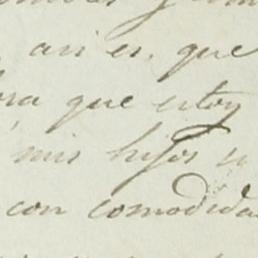 asi es, que
ora que estoy
mis hijos y
con comodida